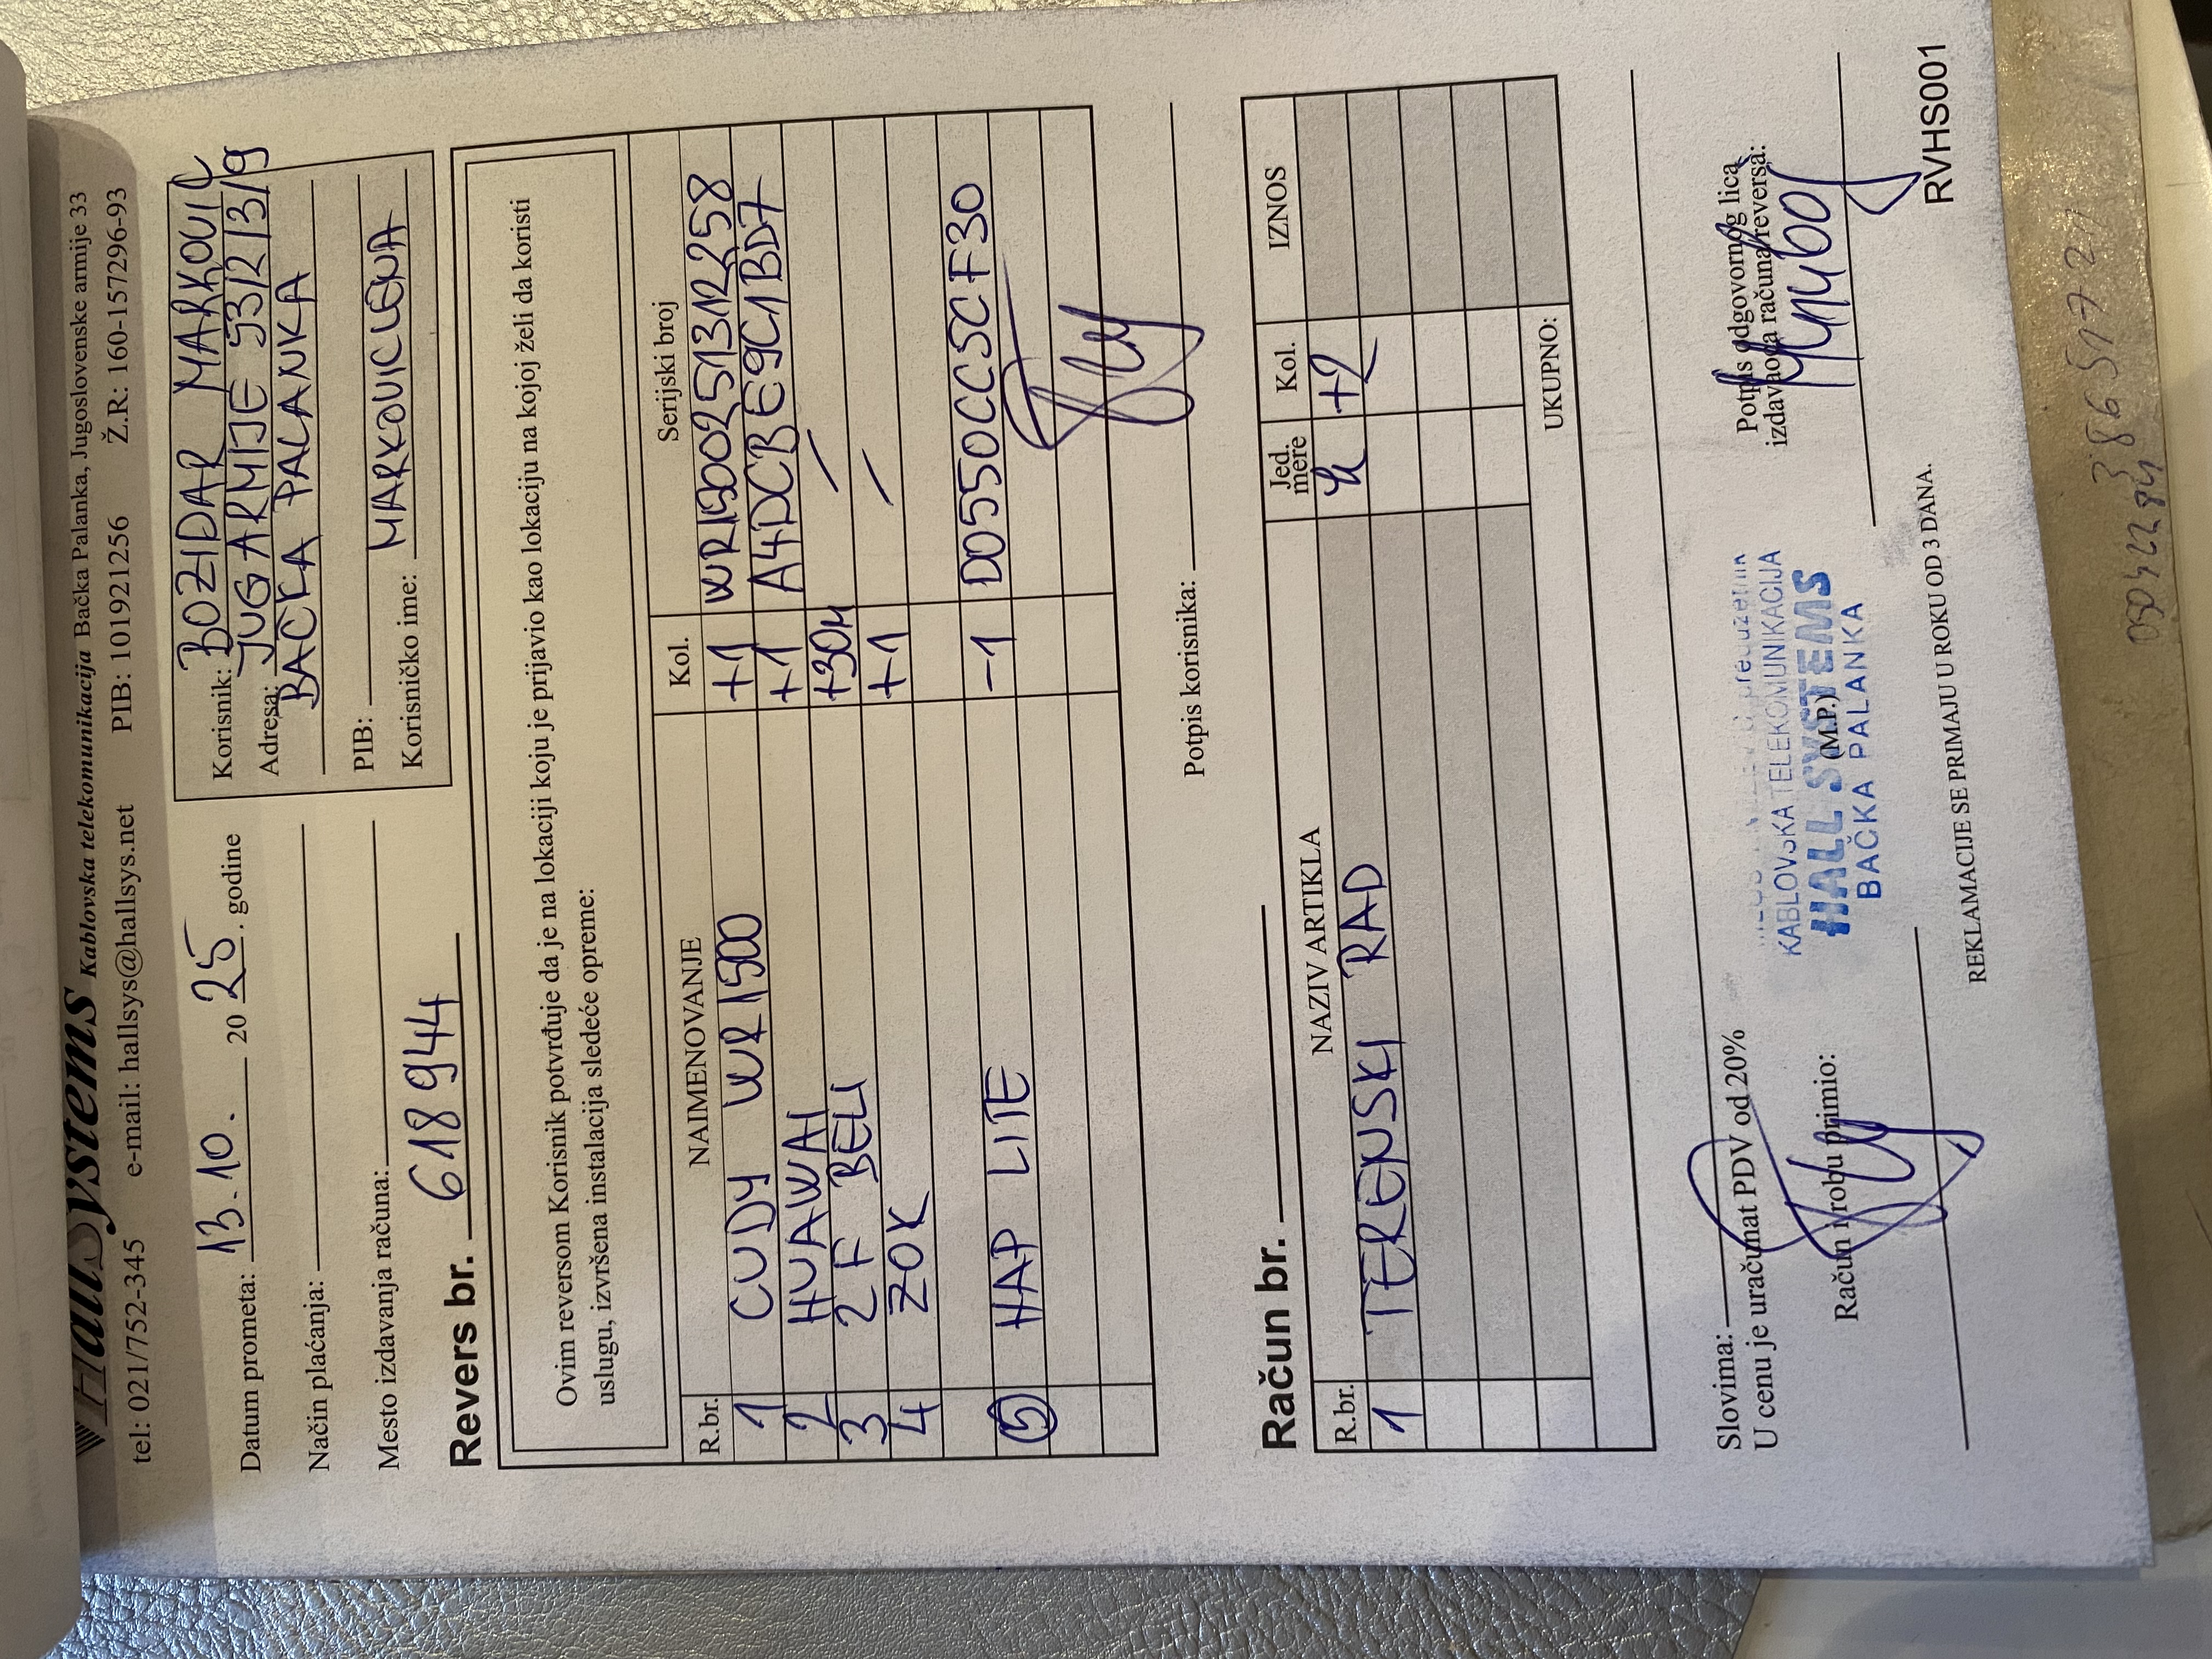 HallSystems Kablovska telekomunikacija Bačka Palanka, Jugoslovenske armije 33
tel: 021/752-345 e-mail: hallsys@hallsys.net PIB: 101921256 Ž.R.: 160-157296-93
Datum prometa: 13.10. 20 25. godine
Način plaćanja:
Mesto izdavanja računa:
Korisnik: BOZIDAR MARKOVIC
Adresa: JUG ARMIJE 53/2/3/9
BACKA PALANKA
PIB:
Korisničko ime: MARKOVICLENA
Revers br. 618944
Ovim reversom Korisnik potvrđuje da je na lokaciji koju je prijavio kao lokaciju na kojoj želi da koristi
uslugu, izvršena instalacija sledeće opreme:
R.br. NAIMENOVANJE Kol. Serijski broj
1 CUDY WR1500 +1 WR1500251312258
2 HUAWAI +1 A4DCBE9C1BD7
3 2F BELI +30M /
4 ZOK +1 /
5 HAP LITE -1 D0550CC5CF30
Potpis korisnika:
Račun br.
R.br. NAZIV ARTIKLA Jed. mere Kol. IZNOS
1 TERENSKI RAD h +2
UKUPNO:
Slovima:
U cenu je uračunat PDV od 20%
Račun i robu primio:
preduzetnik
KABLOVSKA TELEKOMUNIKACIJA
HALL SYSTEMS
(M.P.)
BAČKA PALANKA
Potpis odgovornog lica
izdavaoca računa/reversa:
REKLAMACIJE SE PRIMAJU U ROKU OD 3 DANA.
RVHS001